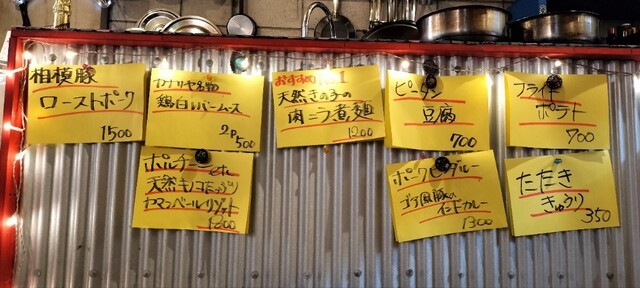 相模豚
ローストポーク
1500
カナリヤ名物
鶏白レバームース
2P 500
おすすめ No.1
天然きの子の
肉ニラ煮麺
1200
ピータン
豆腐
700
フライド
ポテト
700
ポルチーニetc
天然キノコたっぷり
カマンベールリゾット
1800
ポークビンダルー
ゴア風豚の
インドカレー
1300
たたき
きゅうり
350